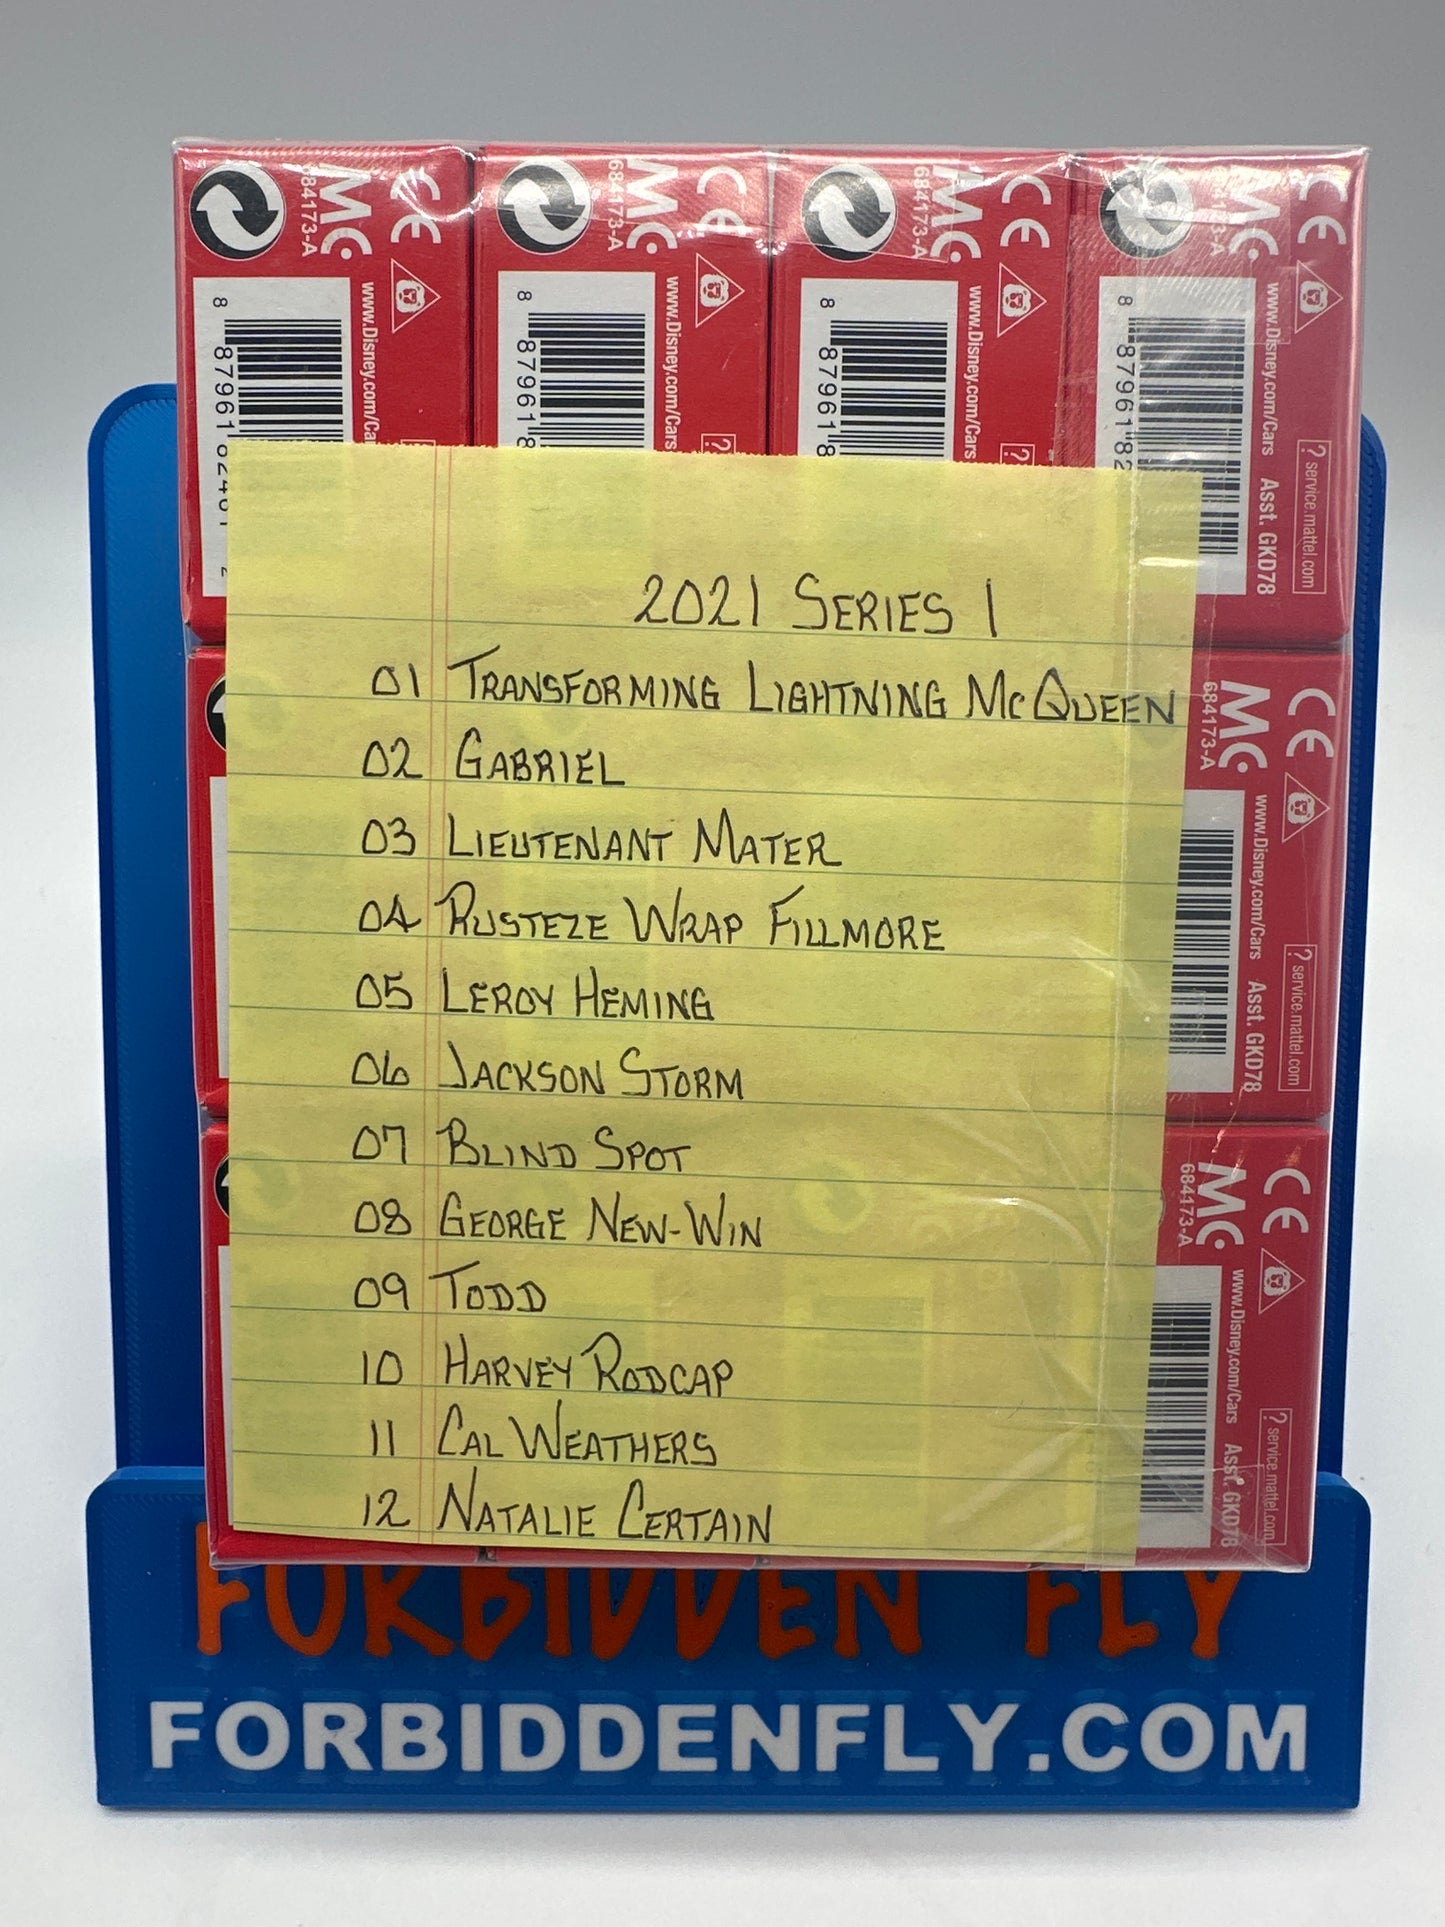 CE CE CE CE
MC. MC. MC. MC.
684173-A 684173-A 684173-A
www.Disney.com/Cars www.Disney.com/Cars www.Disney.com/Cars
8 8 8 8
87961 879618 879618 87961 82
? service.mattel.com
Asst. GKD78
2021 SERIES 1
01 TRANSFORMING LIGHTNING MCQUEEN
02 GABRIEL
03 LIEUTENANT MATER
04 RUSTEZE WRAP FILLMORE
05 LEROY HEMING
06 JACKSON STORM
07 BLIND SPOT
08 GEORGE NEW-WIN
09 TODD
10 HARVEY RODCAP
11 CAL WEATHERS
12 NATALIE CERTAIN
CE
MC.
684173-A
www.Disney.com/Cars
? service.mattel.com
Asst. GKD78
CE
MC.
684173-A
www.Disney.com/Cars
? service.mattel.com
Asst. GKD78
FORBIDDEN FLY
FORBIDDENFLY.COM